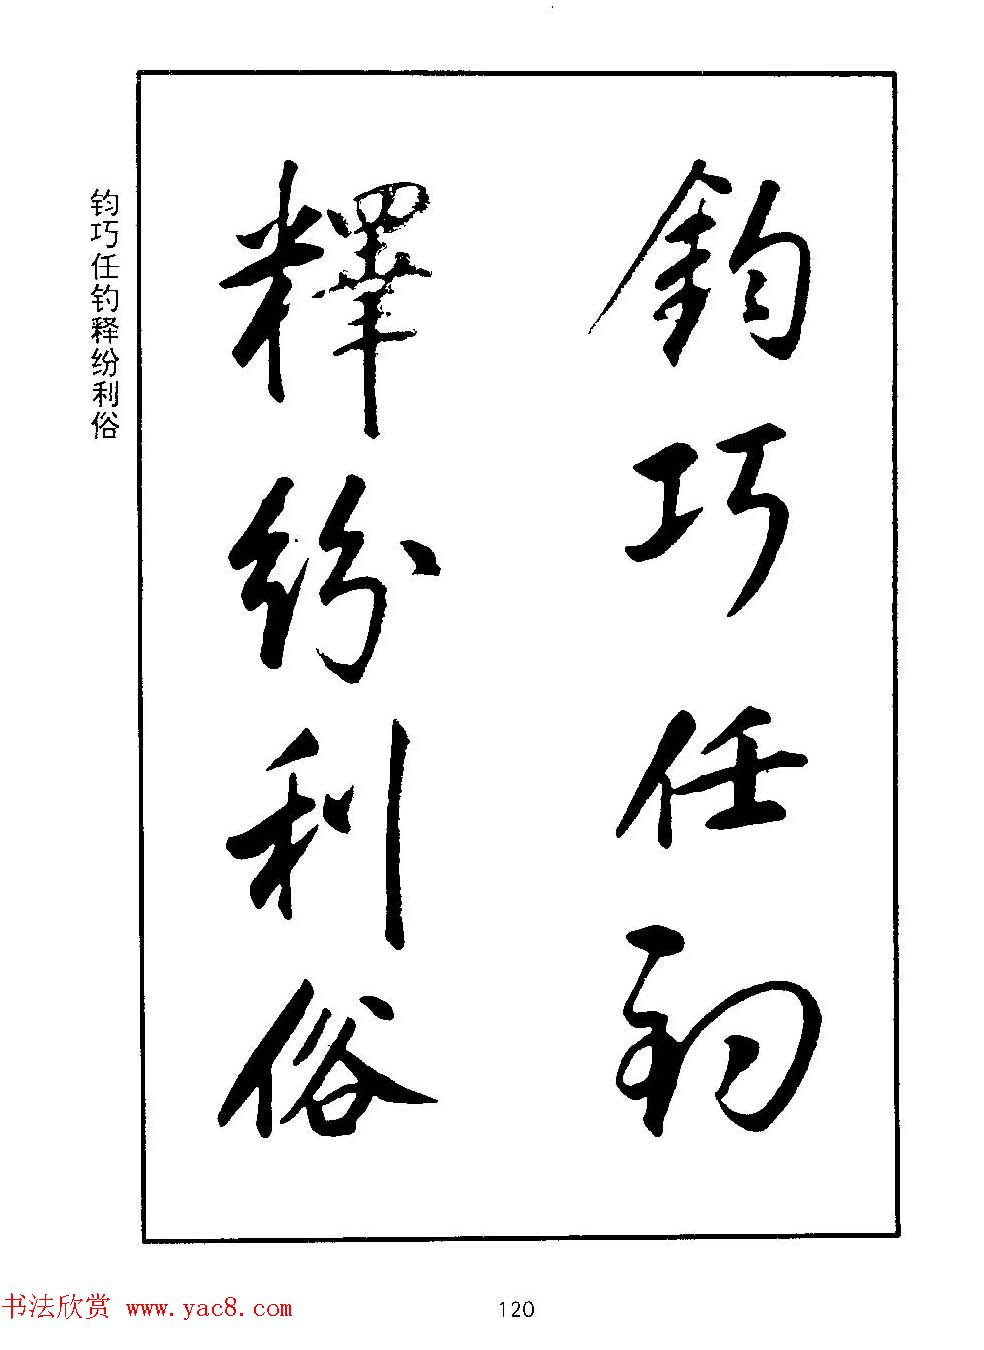 鈞巧任釣
釋紛利俗
钧巧任钓释纷利俗
书法欣赏 www.yac8.com
120